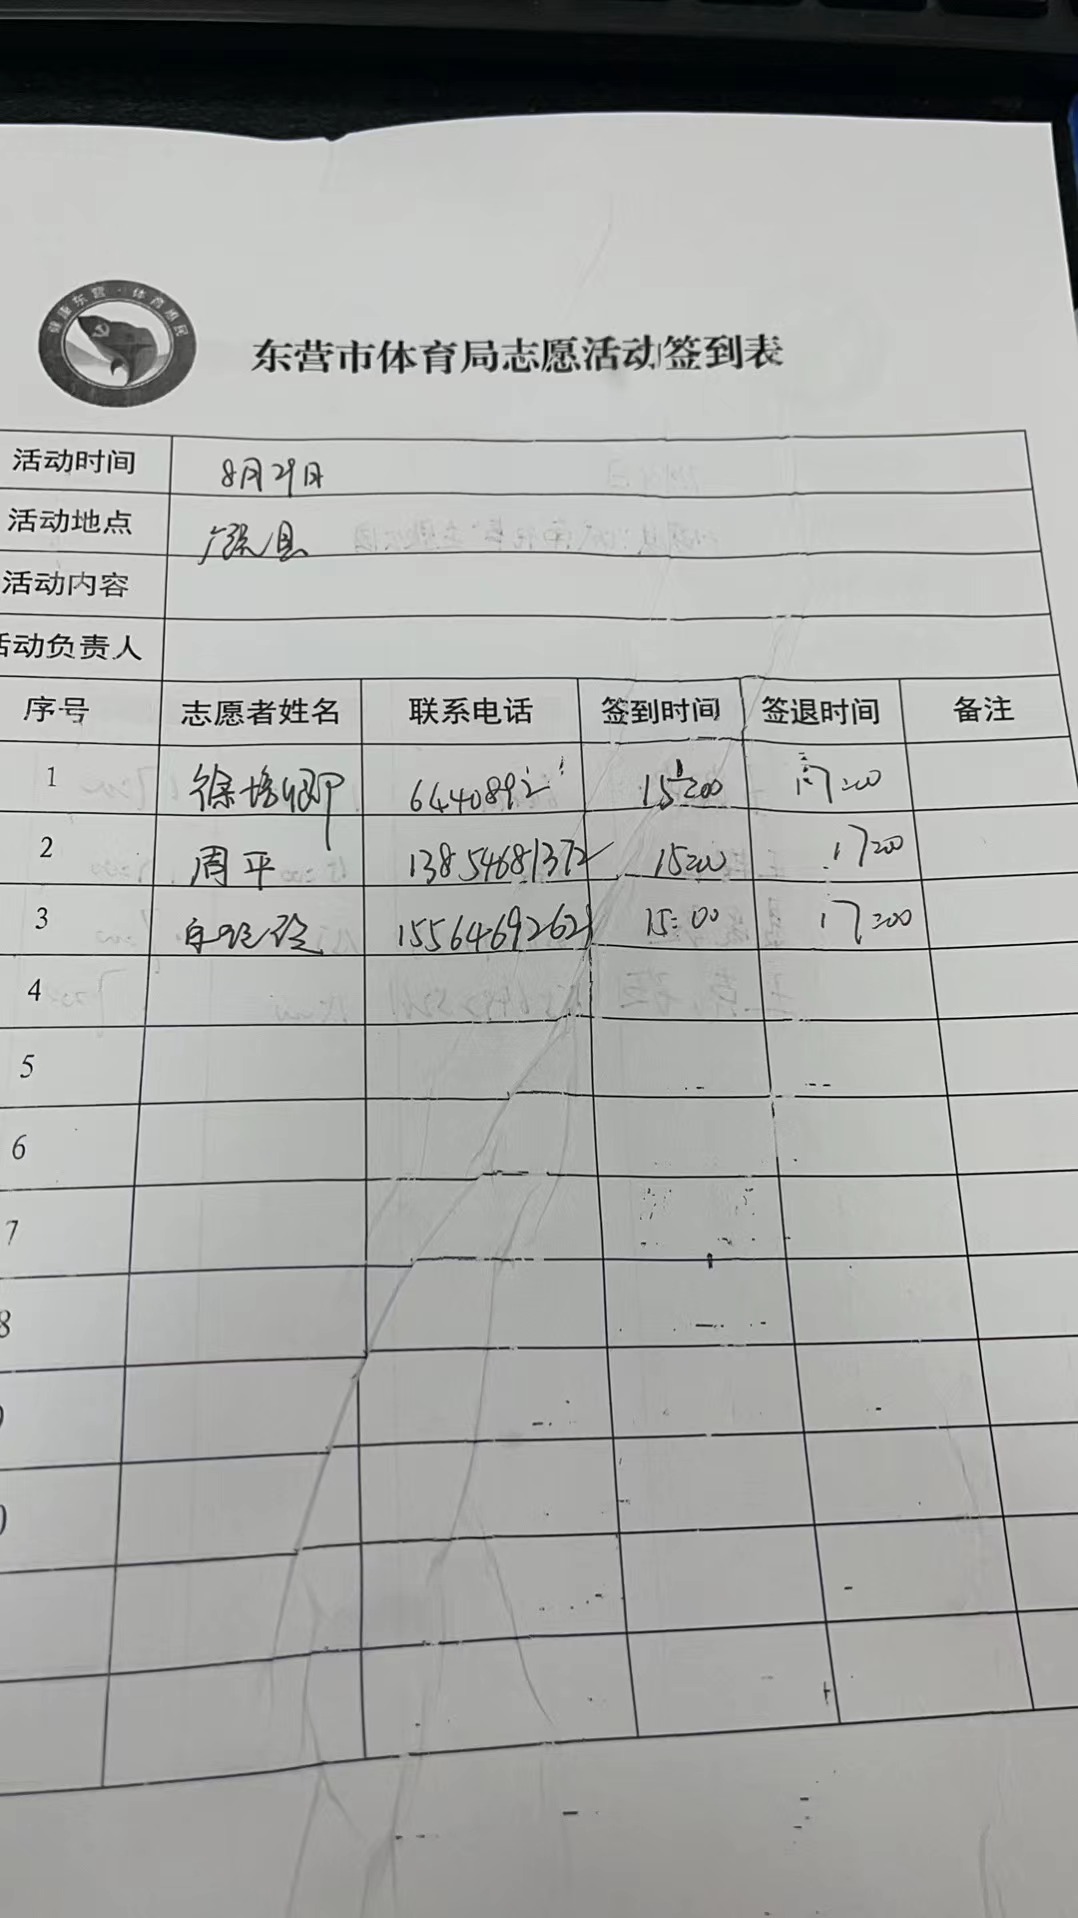 健康东营·体育惠民
东营市体育局志愿活动签到表
活动时间 8月29日
活动地点 广饶县
活动内容
活动负责人
序号 志愿者姓名 联系电话 签到时间 签退时间 备注
1 徐培卿 15:00 17:00
2 周平 13854681372 15:00 17:00
3 15564692628 15:00 17:00
4
5
6
7
8